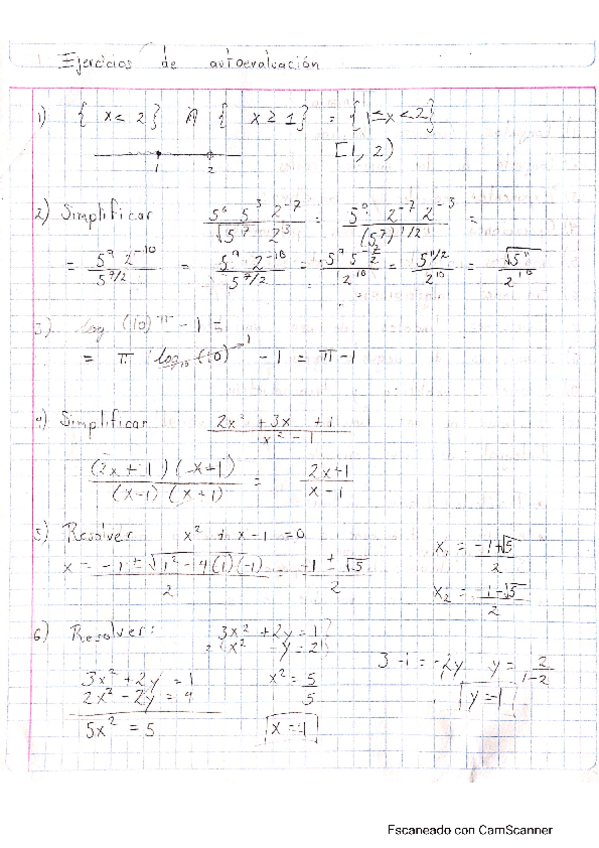 Ejercicios de autoevaluación
1) { x < 2 } ∩ { x ≥ 1 } = { 1 ≤ x < 2 }
[1, 2)
1 2
2) Simplificar (5⁶ 5³ 2⁻⁷)/(√5⁷ 2¹³) = (5⁹ 2⁻⁷ 2⁻³)/(5⁷)^1/2 =
= (5⁹ 2⁻¹⁰)/5^7/2 = (5⁹ 2⁻¹⁰)/5^7/2 = (5⁹ 5^-7/2)/2¹⁰ = 5^11/2/2¹⁰ = √5¹¹/2¹⁰
3) log (10)^π - 1 =
= π log₁₀ (10) 1 - 1 = π - 1
4) Simplificar (2x² + 3x + 1)/(x² - 1)
(2x + 1)(x + 1)/(x-1)(x+1) = (2x+1)/(x-1)
5) Resolver x² + x - 1 = 0
x = (-1 ± √1² - 4(1)(-1))/2 = (-1 ± √5)/2
x₁ = (-1+√5)/2
x₂ = (-1-√5)/2
6) Resolver: 3x² + 2y = 1
2(x² - y = 2)
3x² + 2y = 1
2x² - 2y = 4
5x² = 5
x² = 5/5
x = 1
3 - 1 = -2y y = 2/-2
y = -1
Escaneado con CamScanner